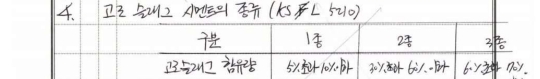 4. 고로 슬래그 시멘트의 종류 (KS F L 5210)
구분 1종 2종 3종
고로슬래그 함유량 5%초과 30%이하 30%초과 60%이하 60%초과 70%